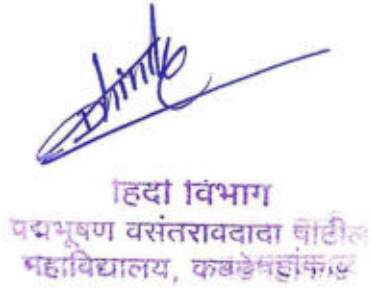 हिंदी विभाग
पद्मभूषण वसंतरावदादा पाटील
महाविद्यालय,